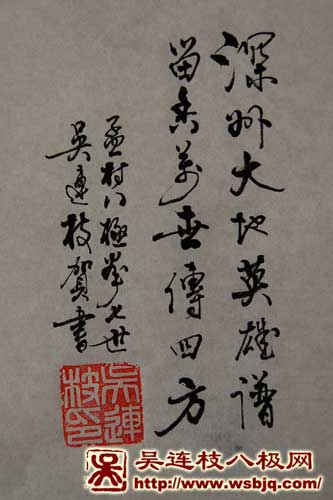 深州大地英雄谱
留香萬世傳四方
孟村八極拳七世
吳連枝賀書
吳連
枝印
吴连枝八极网
http://www.wsbjq.com/